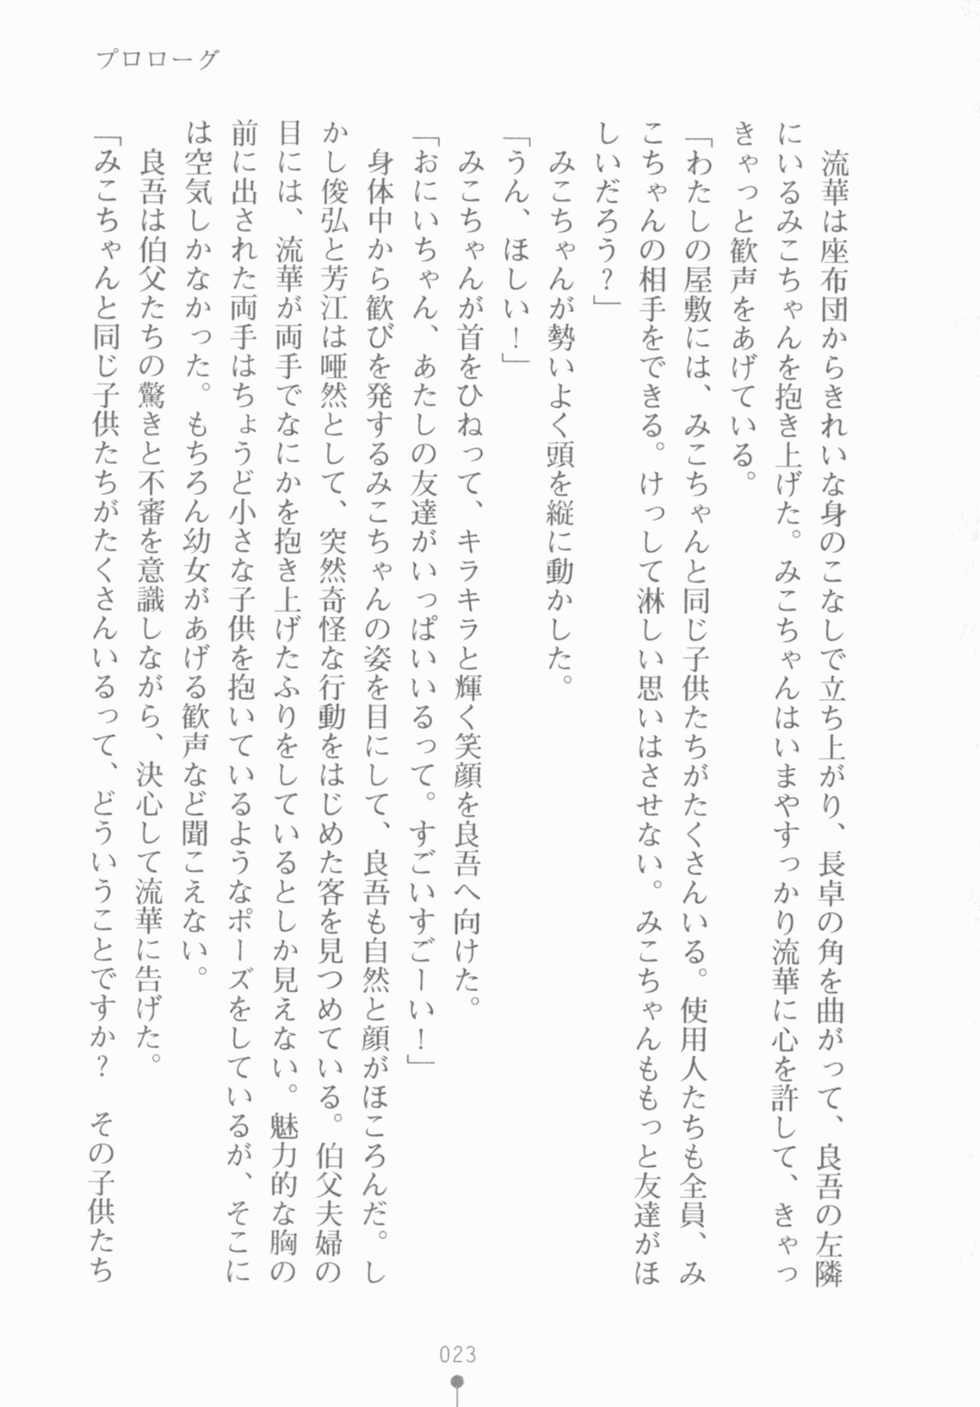 プロローグ
流華は座布団からきれいな身のこなしで立ち上がり、長卓の角を曲がって、良吾の左隣
にいるみこちゃんを抱き上げた。みこちゃんはいまやすっかり流華に心を許して、きゃっ
きゃっと歓声をあげている。
「わたしの屋敷には、みこちゃんと同じ子供たちがたくさんいる。使用人たちも全員、み
こちゃんの相手をできる。けっして淋しい思いはさせない。みこちゃんももっと友達がほ
しいだろう?」
みこちゃんが勢いよく頭を縦に動かした。
「うん、ほしい!」
みこちゃんが首をひねって、キラキラと輝く笑顔を良吾へ向けた。
「おにいちゃん、あたしの友達がいっぱいいるって。すごいすごーい!」
身体中から歓びを発するみこちゃんの姿を目にして、良吾も自然と顔がほころんだ。し
かし俊弘と芳江は唖然として、突然奇怪な行動をはじめた客を見つめている。伯父夫婦の
目には、流華が両手でなにかを抱き上げたふりをしているとしか見えない。魅力的な胸の
前に出された両手はちょうど小さな子供を抱いているようなポーズをしているが、そこに
は空気しかなかった。もちろん幼女があげる歓声など聞こえない。
良吾は伯父たちの驚きと不審を意識しながら、決心して流華に告げた。
「みこちゃんと同じ子供たちがたくさんいるって、どういうことですか? その子供たち
023